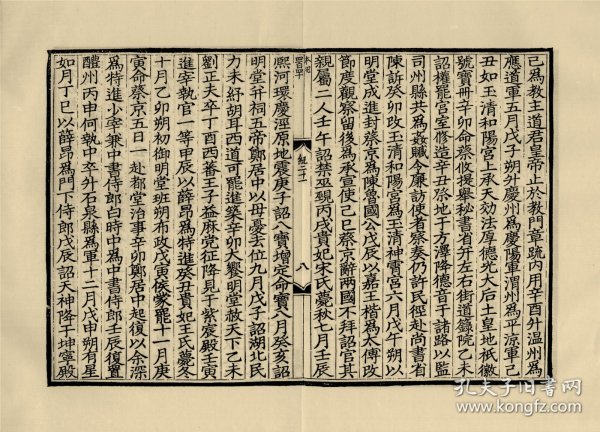 己為教主道君皇帝止於教門章疏內用辛酉升溫州為
應道軍五月戊子朔升慶州為慶陽軍渭州為平涼軍己
丑如玉清和陽宮上承天効法厚德光大后土皇地祇徽
號寶冊辛卯命蔡攸提舉秘書省并左右街道籙院乙未
詔權罷宮室修造辛丑祭地于方澤降德音于諸路以監
司州縣共為姦贓令廉訪使者察奏仍許民徑赴尚書省
陳訴癸卯改玉清和陽宮為玉清神霄宮六月戊午朔以
明堂成進封蔡京為陳魯國公戊辰以嘉王楷為太傅改
節度觀察留後為承宣使己巳蔡京辭兩國不拜詔官其
親屬二人壬午詔禁巫覡丙戌貴妃宋氏薨秋七月壬辰
紀二十一
八
熙河環慶涇原地震庚子詔八寶增定命寶八月癸亥詔
明堂并祠五帝鄭居中以母憂去位九月戊子詔湖北民
力未紓胡耳西道可罷進築辛卯大饗明堂赦天下乙未
劉正夫卒丁酉西蕃王子益麻党征降見于紫宸殿壬寅
進宰執官一等甲辰以薛昂為特進癸丑貴妃王氏薨冬
十月乙卯朔初御明堂班朔布政戊寅侯蒙罷十一月庚
寅命蔡京五日一赴都堂治事辛卯鄭居中起復以余深
為特進少宰兼中書侍郎白時中為中書侍郎壬辰復置
醴州丙申何執中卒升石泉縣為軍十二月戊申朔有星
如月丁巳以薛昂為門下侍郎戊辰詔天神降于坤寧殿
孔夫子旧书网
www.kongfz.com